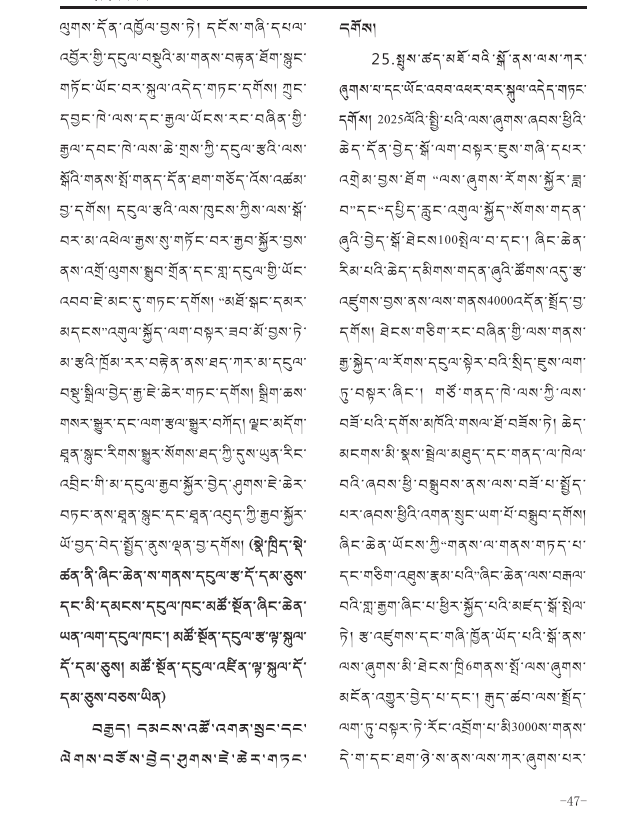 ལུགས་དོན་འཁྱོལ་བྱས་ཏེ། དངོས་གཞི་དཔལ་
འབྱོར་གྱི་དངུལ་བསྡུའི་མ་གནས་བརྟན་ཐོག་སྐྲུང་
གཏོང་ཡོང་བར་སྐུལ་འདེད་གཏང་དགོས། ཀྲུང་
དབྱང་ཁེ་ལས་དང་རྒྱལ་ཡོངས་རང་བཞིན་གྱི་
རྒྱལ་དབང་ཁེ་ལས་ཆེ་གྲས་ཀྱི་དངུལ་རྩའི་ལས་
སྒོའི་གནས་སྤོ་གནད་དོན་ཐག་གཅོད་འོས་འཚམ་
བྱ་དགོས། དངུལ་རྩའི་ལས་ཁུངས་ཀྱིས་ལས་སྒོ་
བར་མ་འཕེལ་རྒྱས་སུ་གཏོང་བར་རྒྱབ་སྐྱོར་བྱས་
ནས་འགྲོ་ལུགས་སྒྲུབ་གྲོན་དང་གླ་དངུལ་གྱི་ཡོང་
འབབ་ཇེ་མང་དུ་གཏང་དགོས། “མཐོ་སྒང་དམར་
མདངས”འགུལ་སྐྱོད་ལག་བསྟར་ཟབ་མོ་བྱས་ཏེ་
མ་རྩའི་ཁྲོམ་རར་བརྟེན་ནས་ཐད་ཀར་མ་དངུལ་
བསྡུ་སྒྲིལ་བྱེད་རྒྱ་ཇེ་ཆེར་གཏང་དགོས། སྒྲིག་ཆས་
གསར་སྒྱུར་དང་ལག་རྩལ་སྒྱུར་བཀོད། ལྗང་མདོག་
ཐྲན་སྐྲུང་རིགས་སྒྱུར་སོགས་ཐད་ཀྱི་དུས་ཡུན་རིང་
འབྲིང་གི་མ་དངུལ་རྒྱབ་སྐྱོར་བྱེད་ཤུགས་ཇེ་ཆེར་
བཏང་ནས་ཐྲན་སྐྲུང་དང་ཐྲན་འབུད་ཀྱི་རྒྱབ་སྐྱོར་
ཡོ་བྱད་བེད་སྤྱོད་ནུས་ལྡན་བྱ་དགོས། (སྣེ་ཁྲིད་སྡེ་
ཚན་ནི་ཞིང་ཆེན་ས་གནས་དངུལ་རྩ་དོ་དམ་ཅུས་
དང་མི་དམངས་དངུལ་ཁང་མཚོ་སྔོན་ཞིང་ཆེན་
ཡན་ལག་དངུལ་ཁང་། མཚོ་སྔོན་དངུལ་རྩ་ལྟ་སྐུལ་
དོ་དམ་ཅུས། མཚོ་སྔོན་དངུལ་འཛིན་ལྟ་སྐུལ་དོ་
དམ་ཅུས་བཅས་ཡིན)
བརྒྱད། དམངས་འཚོ་འགན་སྲུང་དང་
ལེགས་བཅོས་བྱེད་ཤུགས་ཇེ་ཆེར་གཏང་
དགོས།
25.སྤུས་ཚད་མཐོ་བའི་སྒོ་ནས་ལས་ཀར་
ཞུགས་པ་དང་ཡོང་འབབ་འཕར་བར་སྐུལ་འདེད་གཏང་
དགོས། 2025ལོའི་སྤྱི་པའི་ལས་ཞུགས་ཞབས་ཕྱིའི་
ཆེད་དོན་བྱེད་སྒོ་ལག་བསྟར་ཇུས་གཞི་དཔར་
འགྲེམ་བྱས་ཐོག “ལས་ཞུགས་རོགས་སྐྱོར་ཟླ་
བ”དང“དཔྱིད་རླུང་འགུལ་སྐྱོད”སོགས་གདན་
ཞུའི་བྱེད་སྒོ་ཐེངས100སྤེལ་བ་དང་། ཞིང་ཆེན་
རིམ་པའི་ཆེད་དམིགས་གདན་ཞུའི་ཚོགས་འདུ་རྩ་
འཛུགས་བྱས་ནས་ལས་གནས4000འདོན་སྤྲོད་བྱ་
དགོས། ཐེངས་གཅིག་རང་བཞིན་གྱི་ལས་གནས་
རྒྱ་སྐྱེད་ལ་རོགས་དངུལ་སྟེར་བའི་སྲིད་ཇུས་ལག་
ཏུ་བསྟར་ཞིང་། གཙོ་གནད་ཁེ་ལས་ཀྱི་ལས་
བཟོ་པའི་དགོས་མཁོའི་གསལ་ཐོ་བཟོས་ཏེ། ཆེད་
མངགས་མི་སྣས་སྦྲེལ་མཐུད་དང་གནད་ལ་ཁེལ་
བའི་ཞབས་ཕྱི་བསྒྲུབས་ནས་ལས་བཟོ་པ་སྤྱོད་
པར་ཞབས་ཕྱིའི་འགན་སྲུང་ཡག་པོ་བསྒྲུབ་དགོས།
ཞིང་ཆེན་ཡོངས་ཀྱི“གནས་ལ་གནས་གཏད་པ་
དང་གཅིག་འཐུས་རྣམ་པའི”ཞིང་ཆེན་ལས་བརྒལ་
བའི་གླ་རྒྱག་ཞིང་པ་ཕྱིར་སྐྱོད་པའི་མཛད་སྒོ་སྤེལ་
ཏེ། རྩ་འཛུགས་དང་གཞི་ཁྱོན་ཡོད་པའི་སྒོ་ནས་
ལས་ཞུགས་མི་ཐེངས་ཁྲི6གནས་སྤོ་ལས་ཞུགས་
མངོན་འགྱུར་བྱེད་པ་དང་། རྒུད་ཚབ་ལས་སྤྲོད་
ལག་ཏུ་བསྟར་ཏེ་རོང་འབྲོག་པ་མི3000ས་གནས་
དེ་ག་དང་ཐག་ཉེ་ས་ནས་ལས་ཀར་ཞུགས་པར་
-47-